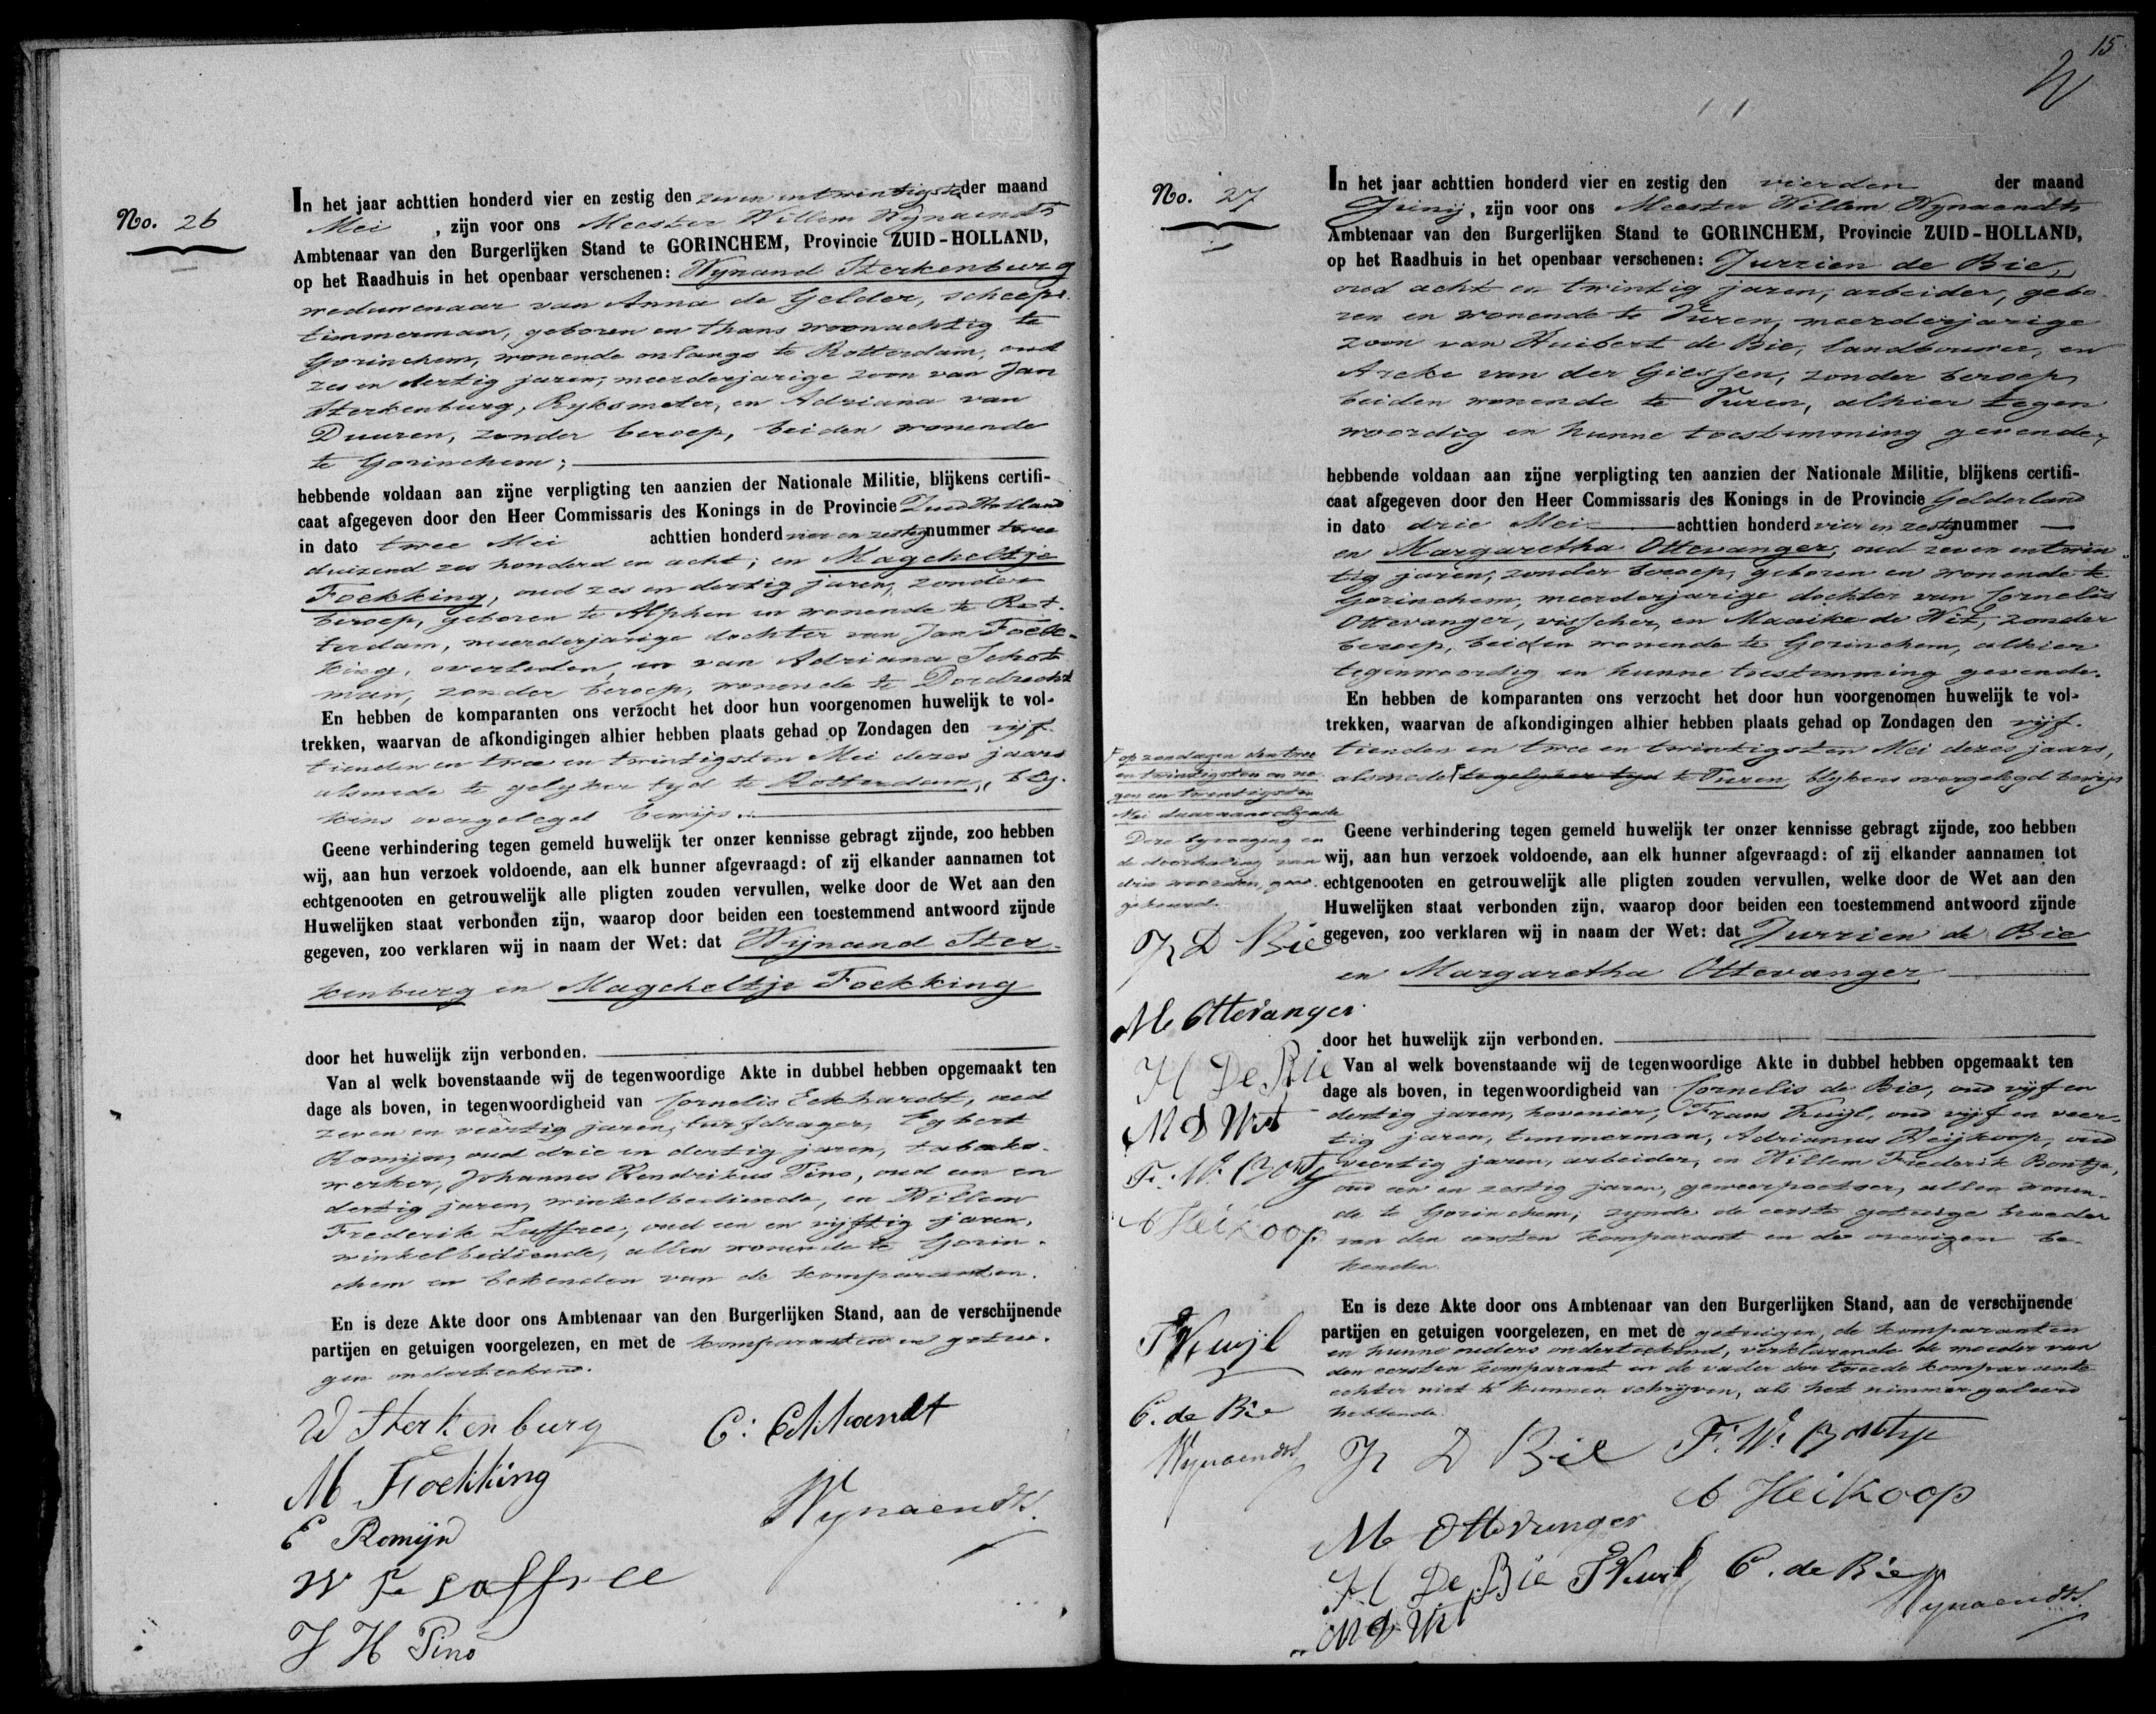 No. 26
In het jaar achttien honderd vier en zestig den zeven en twintigsten der maand
Mei , zijn voor ons Meester Willem Wynaendts
Ambtenaar van den Burgerlijken Stand te GORINCHEM, Provincie ZUID-HOLLAND,
op het Raadhuis in het openbaar verschenen: Wynand Sterkenburg
weduwenaar van Anna de Gelder, scheeps.
timmerman, geboren en thans woonachtig te
Gorinchem, wonende onlangs te Rotterdam, oud
zes en dertig jaren, meerderjarige zoon van Jan
Sterkenburg, Ryksmeter, en Adriana van
Duuren, zonder beroep, beiden wonende
te Gorinchem;
hebbende voldaan aan zijne verpligting ten aanzien der Nationale Militie, blijkens certifi-
caat afgegeven door den Heer Commissaris des Konings in de Provincie Zuid Holland
in dato twee Mei achttien honderd vier en zestig nummer twee
duizend zes honderd en acht; en Magcheltje
Foekking, oud zes en dertig jaren, zonder
beroep, geboren te Alphen en wonende te Rot-
terdam, meerderjarige dochter van Jan Foek-
king, overleden, en van Adriana Schot
man, zonder beroep, wonende te Dordrecht
En hebben de komparanten ons verzocht het door hun voorgenomen huwelijk te vol-
trekken, waarvan de afkondigingen alhier hebben plaats gehad op Zondagen den vijf-
tienden en twee en twintigsten Mei dezes jaars
alsmede te gelyker tyd te Rotterdam, bly-
kens overgelegd bewijs.
Geene verhindering tegen gemeld huwelijk ter onzer kennisse gebragt zijnde, zoo hebben
wij, aan hun verzoek voldoende, aan elk hunner afgevraagd: of zij elkander aannamen tot
echtgenooten en getrouwelijk alle pligten zouden vervullen, welke door de Wet aan den
Huwelijken staat verbonden zijn, waarop door beiden een toestemmend antwoord zijnde
gegeven, zoo verklaren wij in naam der Wet: dat Wijnand Ster-
kenburg en Magcheltje Foekking
door het huwelijk zijn verbonden.
Van al welk bovenstaande wij de tegenwoordige Akte in dubbel hebben opgemaakt ten
dage als boven, in tegenwoordigheid van Cornelis Eckhardt, oud
zeven en veertig jaren, turfdrager, Egbert
Romijn, oud drie en dertig jaren, tabaks-
werker, Johannes Hendrikus Pino, oud een en
dertig jaren, winkelbediende, en Willem
Frederik Laffree, oud een en vyftig jaren,
winkelbediende, allen wonende te Gorin-
chem en bekenden van de komparanten.
En is deze Akte door ons Ambtenaar van den Burgerlijken Stand, aan de verschijnende
partijen en getuigen voorgelezen, en met de komparanten en getui-
gen onderteekend.
W Sterkenburg
C: Eckhardt
M Foekking
Wynaendts
E Romijn
W F Laffree
J H Pino
15
No. 27
In het jaar achttien honderd vier en zestig den vierden der maand
Junij, zijn voor ons Meester Willem Wynaendts
Ambtenaar van den Burgerlijken Stand te GORINCHEM, Provincie ZUID-HOLLAND,
op het Raadhuis in het openbaar verschenen: Jurrien de Bie,
oud acht en twintig jaren, arbeider, gebo-
ren en wonende te Vuren, meerderjarige
zoon van Huibert de Bie, landbouwer, en
Areke van der Giessen, zonder beroep,
beiden wonende te Vuren, alhier tegen
woordig en hunne toestemming gevende,
hebbende voldaan aan zijne verpligting ten aanzien der Nationale Militie, blijkens certifi-
caat afgegeven door den Heer Commissaris des Konings in de Provincie Gelderland
in dato drie Mei achttien honderd vier en zestig nummer —
en Margaretha Ottevanger, oud zeven en twin
tig jaren, zonder beroep, geboren en wonende te
Gorinchem, meerderjarige dochter van Cornelis
Ottevanger, visscher, en Maaike de Wit, zonder
beroep, beiden wonende te Gorinchem, alhier
tegenwoordig en hunne toestemming gevende.
En hebben de komparanten ons verzocht het door hun voorgenomen huwelijk te vol-
trekken, waarvan de afkondigingen alhier hebben plaats gehad op Zondagen den vijf-
tienden en twee en twintigsten Mei dezes jaars,
alsmede te gelyker tyd te Vuren, blykens overgelegd bewijs
op zondagen den twee
en twintigsten en ne-
gen en twintigsten
Mei daaraanvolgende
Deze byvoeging en
de doorhaling van
drie woorden, goed-
gekeurd.
Geene verhindering tegen gemeld huwelijk ter onzer kennisse gebragt zijnde, zoo hebben
wij, aan hun verzoek voldoende, aan elk hunner afgevraagd: of zij elkander aannamen tot
echtgenooten en getrouwelijk alle pligten zouden vervullen, welke door de Wet aan den
Huwelijken staat verbonden zijn, waarop door beiden een toestemmend antwoord zijnde
gegeven, zoo verklaren wij in naam der Wet: dat Jurrien de Bie
en Margaretha Ottevanger
door het huwelijk zijn verbonden.
Van al welk bovenstaande wij de tegenwoordige Akte in dubbel hebben opgemaakt ten
dage als boven, in tegenwoordigheid van Cornelis de Bie, oud vyf en
dertig jaren, hovenier, Frans Kuijl, oud vijf en veer-
tig jaren, timmerman, Adrianus Heijkoop, oud
veertig jaren, arbeider, en Willem Frederik Bontje,
oud een en zestig jaren, geweerpoetser, allen wonen-
de te Gorinchem, zynde de eerste getuige broeder
van den eersten komparant en de overigen be-
kenden.
En is deze Akte door ons Ambtenaar van den Burgerlijken Stand, aan de verschijnende
partijen en getuigen voorgelezen, en met de getuigen, de komparanten
en hunne ouders onderteekend, verklarende de moeder van
den eersten komparant en de vader der tweede komparante
echter niet te kunnen schrijven, als het nimmer geleerd
hebbende.
Jr D Bie
M Ottevanger
H De Bie
M D Wit
F. W. Bontje
A Heikoop
F Kuijl
C. de Bie
Wynaendts
Jr D Bie
F. W. Bontje
A Heikoop
M Ottevanger
H De Bie
F Kuijl
C. de Bie
M D Wit
Wynaendts